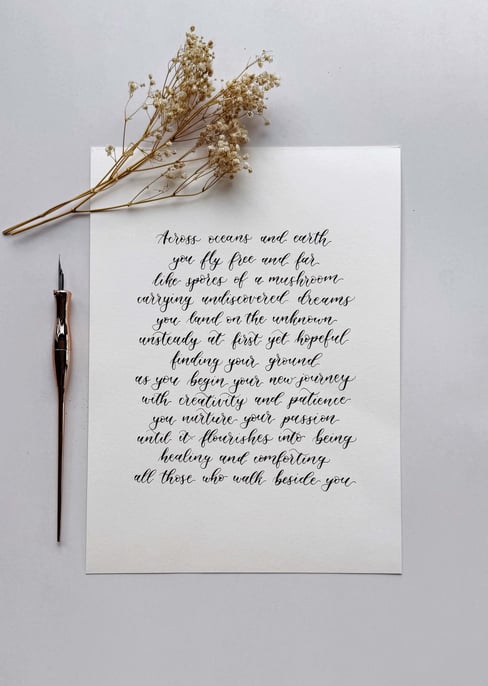 Across oceans and earth
you fly free and far
like spores of a mushroom
carrying undiscovered dreams
you land on the unknown
unsteady at first yet hopeful
finding your ground
as you begin your new journey
with creativity and patience
you nurture your passion
until it flourishes into being
healing and comforting
all those who walk beside you